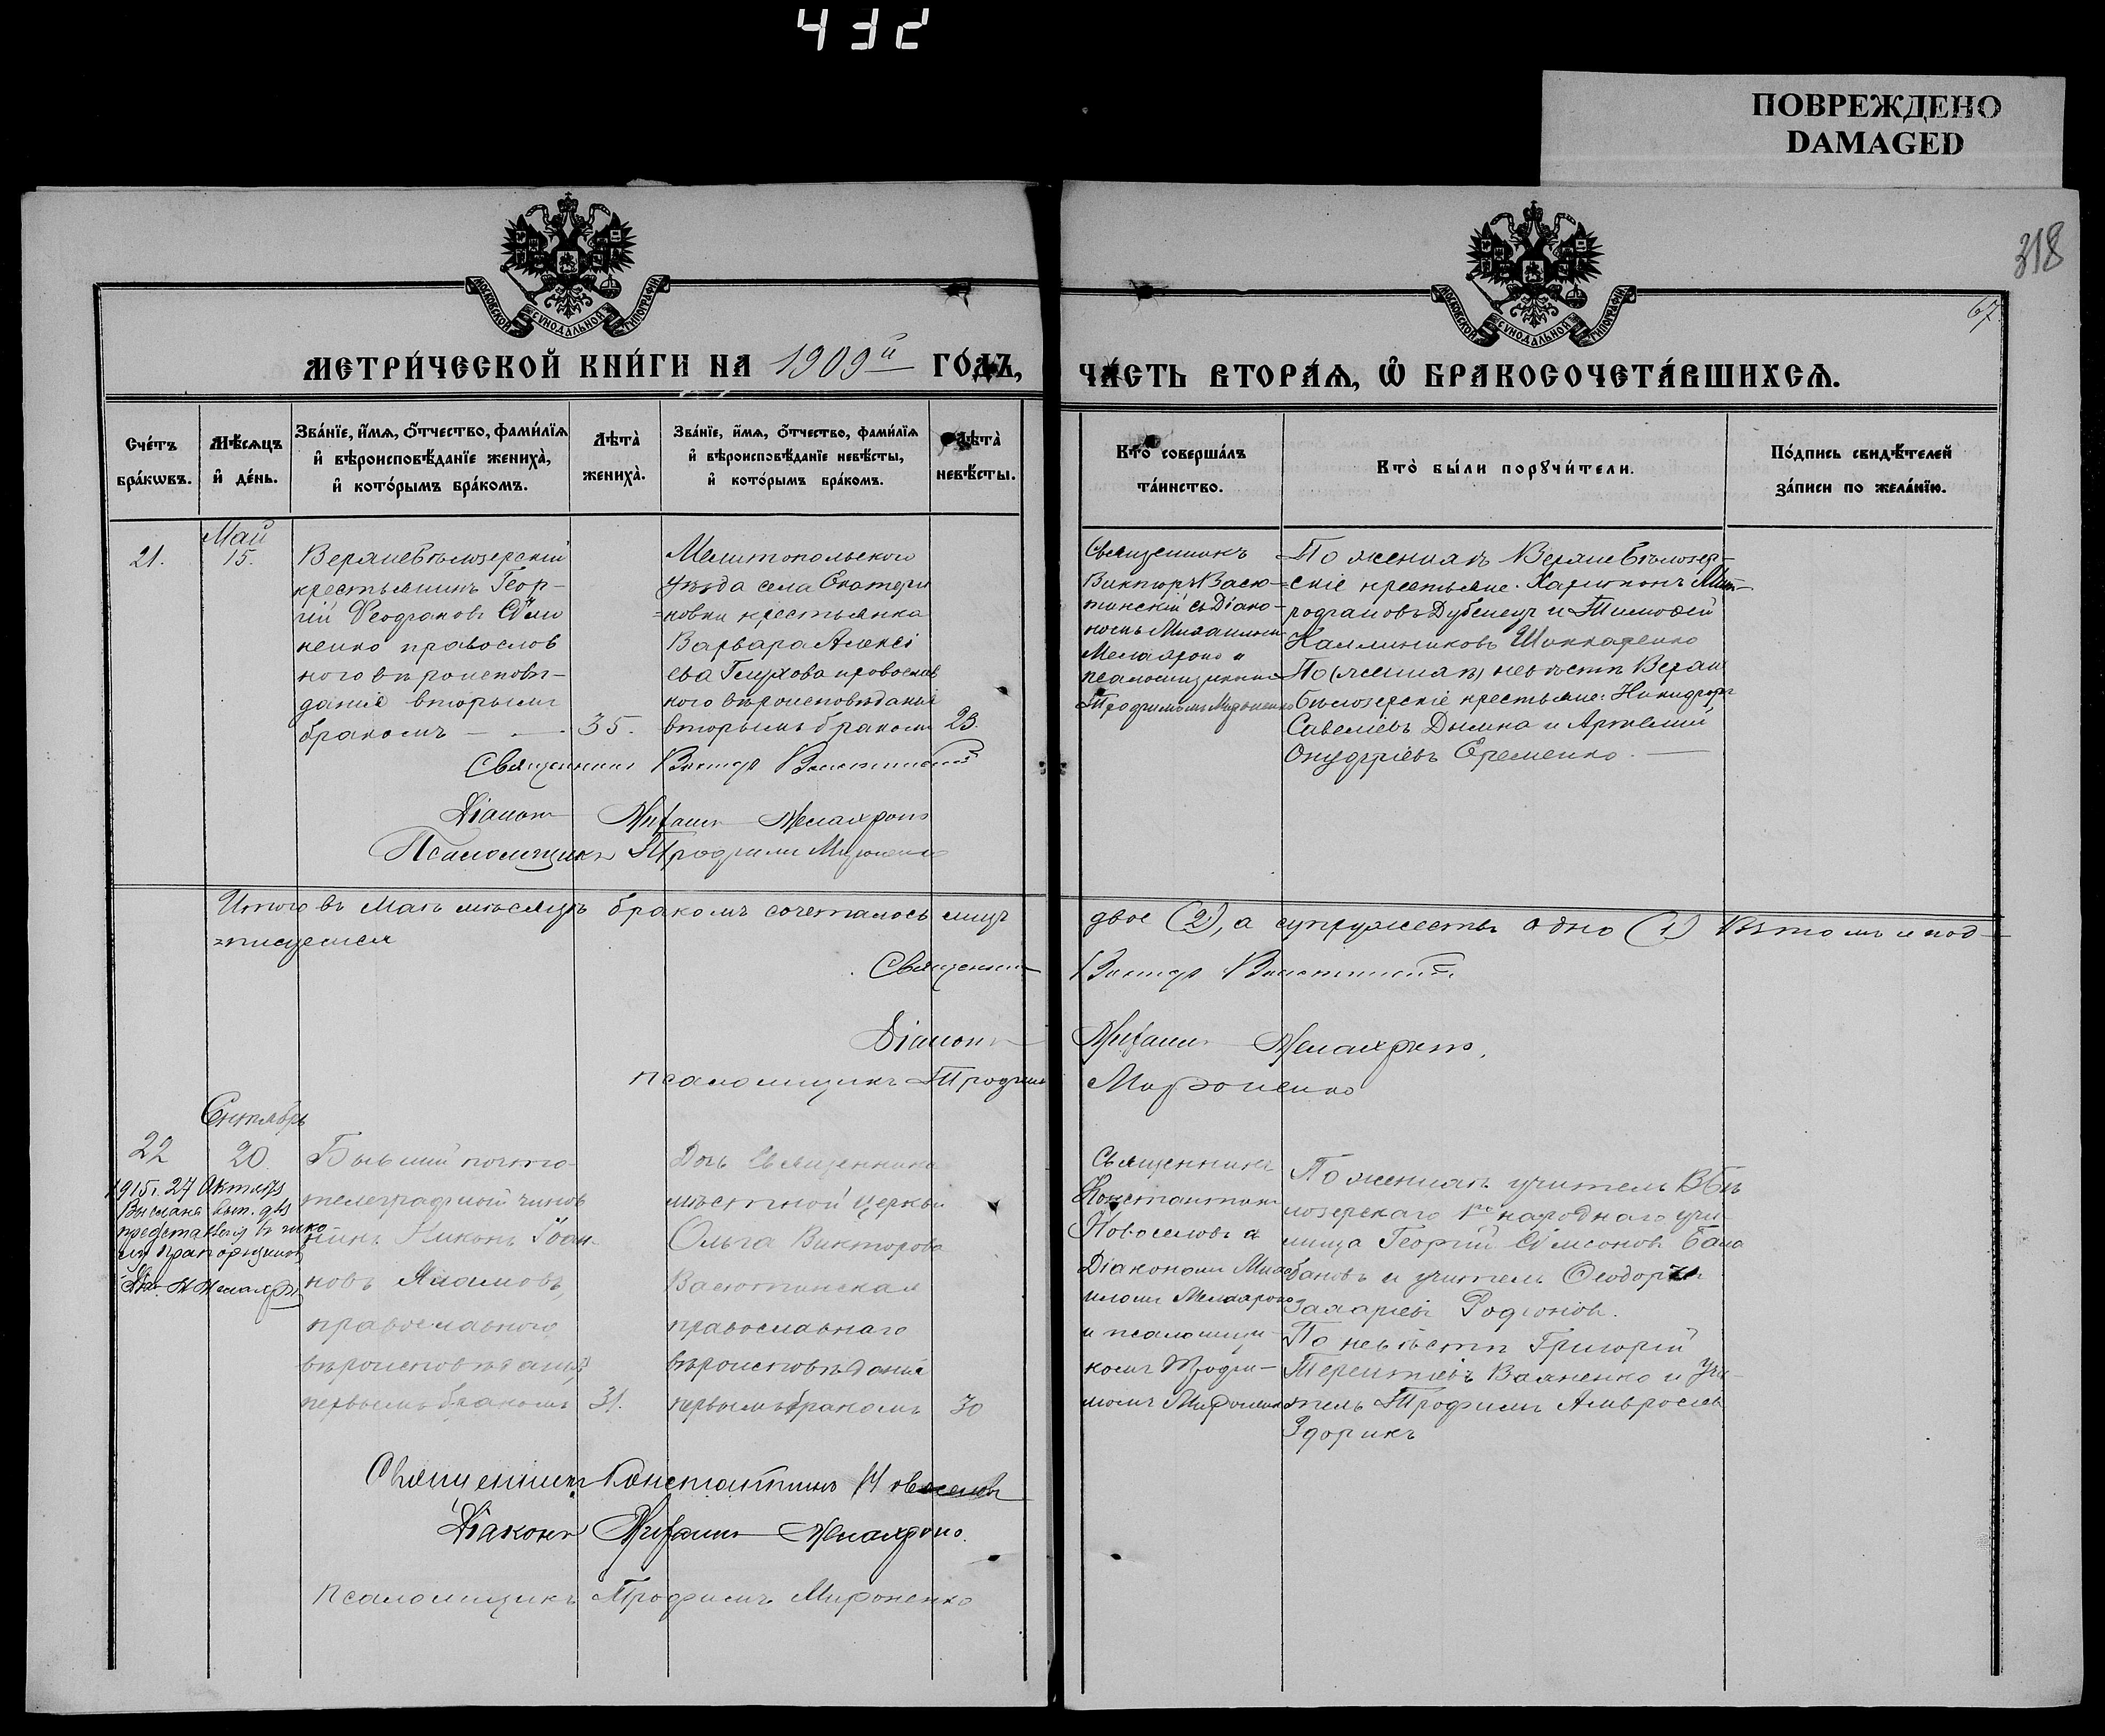 432
ПОВРЕЖДЕНО
DAMAGED
318
67
МОСКОВСКОЙ СѴНОДАЛЬНОЙ ТИПОГРАФІИ
МОСКОВСКОЙ СѴНОДАЛЬНОЙ ТИПОГРАФІИ
МЕТРИ́ЧЕСКОЙ КНИ́ГИ НА 1909й ГО́ДЪ,
ЧА́СТЬ ВТОРА́Ѧ, Ѽ БРАКОСОЧЕТА́ВШИХСѦ.
Сче́тъ бра́кѡвъ.
Мѣ́сѧцъ и҆ де́нь.
Зва́нїе, и҆́мѧ, ѻ҆́тчество, фами́лїѧ и҆ вѣроисповѣ́данїе жениха̀, и҆ кото́рымъ бра́комъ.
Лѣта̀ жениха̀.
Зва́нїе, и҆́мѧ, ѻ҆́тчество, фами́лїѧ и҆ вѣроисповѣ́данїе невѣ́сты, и҆ кото́рымъ бра́комъ.
Лѣта̀ невѣ́сты.
Кто̀ соверша́лъ та́инство.
Кто̀ бы́ли порꙋчи́тели.
По́дпись свидѣ́телей за́писи по жела́нїю.
21.
Май
15.
Верхнебѣлозерскій
крестьянинъ Геор-
гій Феофановъ
ненко православ
ного вѣроисповѣ-
данія вторымъ
бракомъ
35.
Мелитопольского
уѣзда села Екатери
=новки крестьянка
Варвара Алексѣ
ева Глухова православ
ного вѣроисповѣданія
вторымъ бракомъ
23.
Священникъ
Викторъ Васю-
тинскій съ Діако-
номъ Михаиломъ
Мелахроно и
псаломщикомъ
Трофимомъ Мироненко
По женихѣ Верхнебѣлозер-
=скіе крестьяне: Харитонъ Мит-
рофановъ Дубенецъ и Тимоѳей
Каллиниковъ Шинкаренко
По невѣстѣ Верхне
бѣлозерскіе крестьяне: Никифоръ
Савеліевъ Дымка и Артемій
Онуфріевъ Еременко.
Священникъ Викторъ Васютинскій
Діаконъ Михаилъ Мелахроно
Псаломщикъ Трофимъ Мироненко
Итого въ Маѣ мѣсяцѣ бракомъ сочеталось лицъ двое (2), а супружествъ одно (1) Въ томъ и под-
=писуемся
Священникъ Викторъ Васютинскій.
Діаконъ Михаилъ Мелахроно.
псаломщикъ Трофимъ Мироненко
Сентябрь
22
20
1915 г. 27 Октября
Выслана вып. для
представленія въ
прапорщиковъ
Діак. М Мелахро
Бывшій почто-
телеграфный чинов
никъ Никонъ Іоан
новъ
православного
вѣроисповѣданія
первымъ бракомъ
31.
Дочь Священника
мѣстной церкви
Ольга Викторова
Васютинская
православнаго
вѣроисповѣданія
первымъ бракомъ
30
Священникъ
Константинъ
Новоселовъ съ
Діакономъ Миха
иломъ Мелахроно
и псаломщи-
комъ Трофи-
момъ Мироненко
По женихѣ учитель В Бѣ
лозерскаго 1го народнаго учи-
лища Георгій Симеоновъ Бала
бановъ и учитель Ѳеодоръ
Захаріевъ Родіоновъ.
По невѣстѣ Григорій
Терентіевъ Вахненко и Учи-
тель Трофимъ Амвросіевъ
Здорикъ
Священникъ Константинъ Новоселовъ
Діаконъ Михаилъ Мелахроно.
псаломщикъ Трофимъ Мироненко